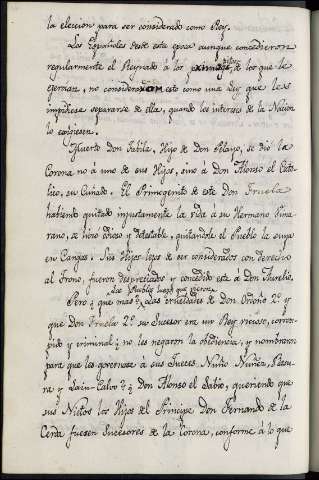 la eleccion para ser considerado como Rey.
Los Españoles desde esta epoca aunque concedieron
regularmente el Reynado á los hijos de los que le
ejercian, no consideraron esto como una Ley que les
impidiese separarse de ella, quando los intereses de la Nacion
lo exigiesen.
Muerto Don Fabila, Hijo de Don Pelayo, se dió la
Corona no á uno de sus Hijos, sino á Don Alonso el Cato-
lico, su Cuñado. El Primogenito de este Don Fruela
habiendo quitado injustamente la vida á su Hermano Vima-
rano, se hizo odioso y detestable, quitandole el Pueblo la suya
en Cangas. Sus Hijos lejos de ser considerados con derecho
al Trono, fueron despreciados y concedido este á Don Aurelio.
Los Pueblos luego que vieron
Pero ¿que más? las crueldades de Don Ordoño 2º y
que Don Fruela 2º su Sucesor era un Rey vicioso, corrom-
pido y criminal; no les negaron la obediencia, y nombraron
para que les governase á sus Jueces Nuño Nuñez, Rasu-
ra y Lain-Calvo? ¿Don Alonso el Sabio, queriendo que
sus Nietos los Hijos del Principe Don Fernando de la
Cerda fuesen Sucesores de la Corona, conforme á lo que